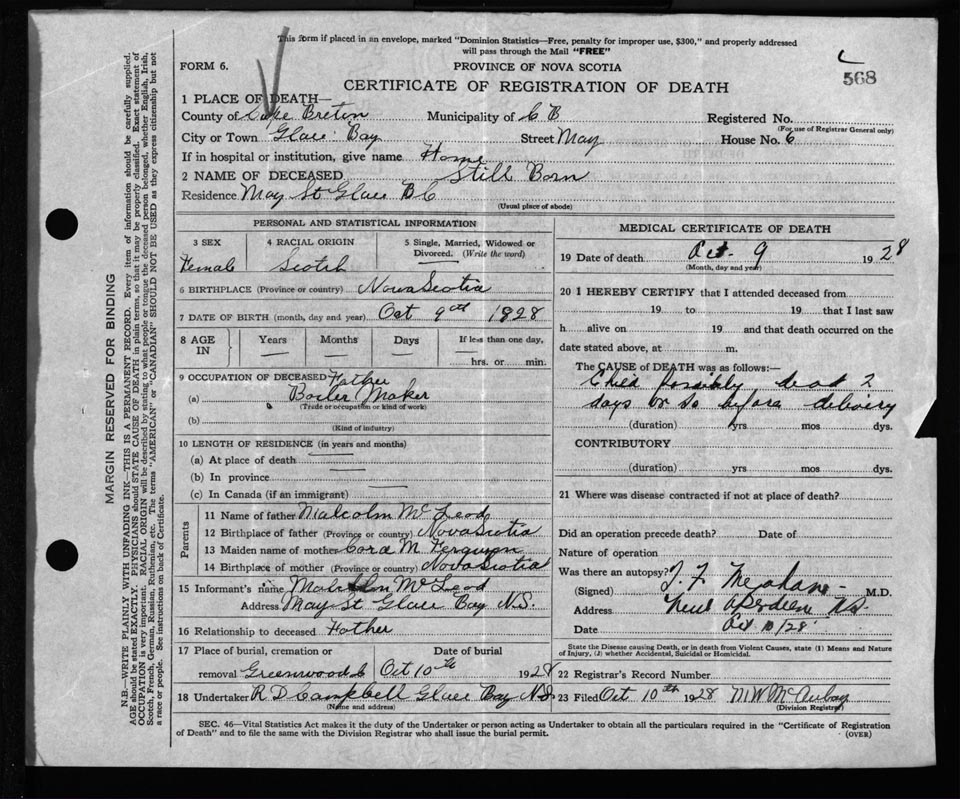 This form if placed in an envelope, marked "Dominion Statistics—Free, penalty for improper use, $300," and properly addressed
will pass through the Mail "FREE"
FORM 6.
PROVINCE OF NOVA SCOTIA
568
CERTIFICATE OF REGISTRATION OF DEATH
1 PLACE OF DEATH—
County of Cape Breton Municipality of C B Registered No.
(For use of Registrar General only)
City or Town Glace Bay Street May House No. 6
If in hospital or institution, give name Home
2 NAME OF DECEASED Still Born
Residence May St Glace B C
(Usual place of abode)
PERSONAL AND STATISTICAL INFORMATION
3 SEX 4 RACIAL ORIGIN 5 Single, Married, Widowed or Divorced. (Write the word)
Female Scotch
6 BIRTHPLACE (Province or country) Nova Scotia
7 DATE OF BIRTH (month, day and year) Oct 9th 1828
8 AGE IN Years Months Days If less than one day,
hrs. or min.
9 OCCUPATION OF DECEASED Father
(a) Boiler Maker
(Trade or occupation or kind of work)
(b)
(Kind of industry)
10 LENGTH OF RESIDENCE (in years and months)
(a) At place of death
(b) In province
(c) In Canada (if an immigrant)
Parents
11 Name of father Malcolm McLeod
12 Birthplace of father (Province or country) Nova Scotia
13 Maiden name of mother Cora M Ferguson
14 Birthplace of mother (Province or country) Nova Scotia
15 Informant's name Malcolm McLeod
Address May St Glace Bay N.S.
16 Relationship to deceased Father
17 Place of burial, cremation or Date of burial
removal Greenwood Oct 10th 1928
18 Undertaker R D Campbell Glace Bay N S
(Name and address)
MEDICAL CERTIFICATE OF DEATH
19 Date of death Oct. 9 1928
(Month, day and year)
20 I HEREBY CERTIFY that I attended deceased from
19 to 19 that I last saw
h alive on 19 and that death occurred on the
date stated above, at m.
The CAUSE of DEATH was as follows:—
Child possibly dead 2
days or so before delivery
(duration) yrs mos dys.
CONTRIBUTORY
(duration) yrs mos dys.
21 Where was disease contracted if not at place of death?
Did an operation precede death? Date of
Nature of operation
Was there an autopsy?
(Signed) T. F. M.D.
Address New Aberdeen N.S.
Date Oct 10/28
State the Disease causing Death, or in death from Violent Causes, state (1) Means and Nature
of Injury, (2) whether Accidental, Suicidal or Homicidal.
22 Registrar's Record Number
23 Filed Oct 10th 1928 M W McAulay
(Division Registrar)
SEC. 46—Vital Statistics Act makes it the duty of the Undertaker or person acting as Undertaker to obtain all the particulars required in the "Certificate of Registration
of Death" and to file the same with the Division Registrar who shall issue the burial permit. (OVER)
MARGIN RESERVED FOR BINDING
N.B.—WRITE PLAINLY WITH UNFADING INK—THIS IS A PERMANENT RECORD. Every item of information should be carefully supplied.
AGE should be stated EXACTLY. PHYSICIANS should STATE CAUSE OF DEATH in plain terms, so that it may be properly classified. Exact statement of
OCCUPATION is very important. RACIAL ORIGIN will be described by stating to what people or tongue the deceased person belonged, whether English, Irish,
Scotch, French, German, Russian, Ruthenian, etc. The terms "AMERICAN" or "CANADIAN" SHOULD NOT BE USED as they express citizenship but not
a race or people. See instructions on back of Certificate.